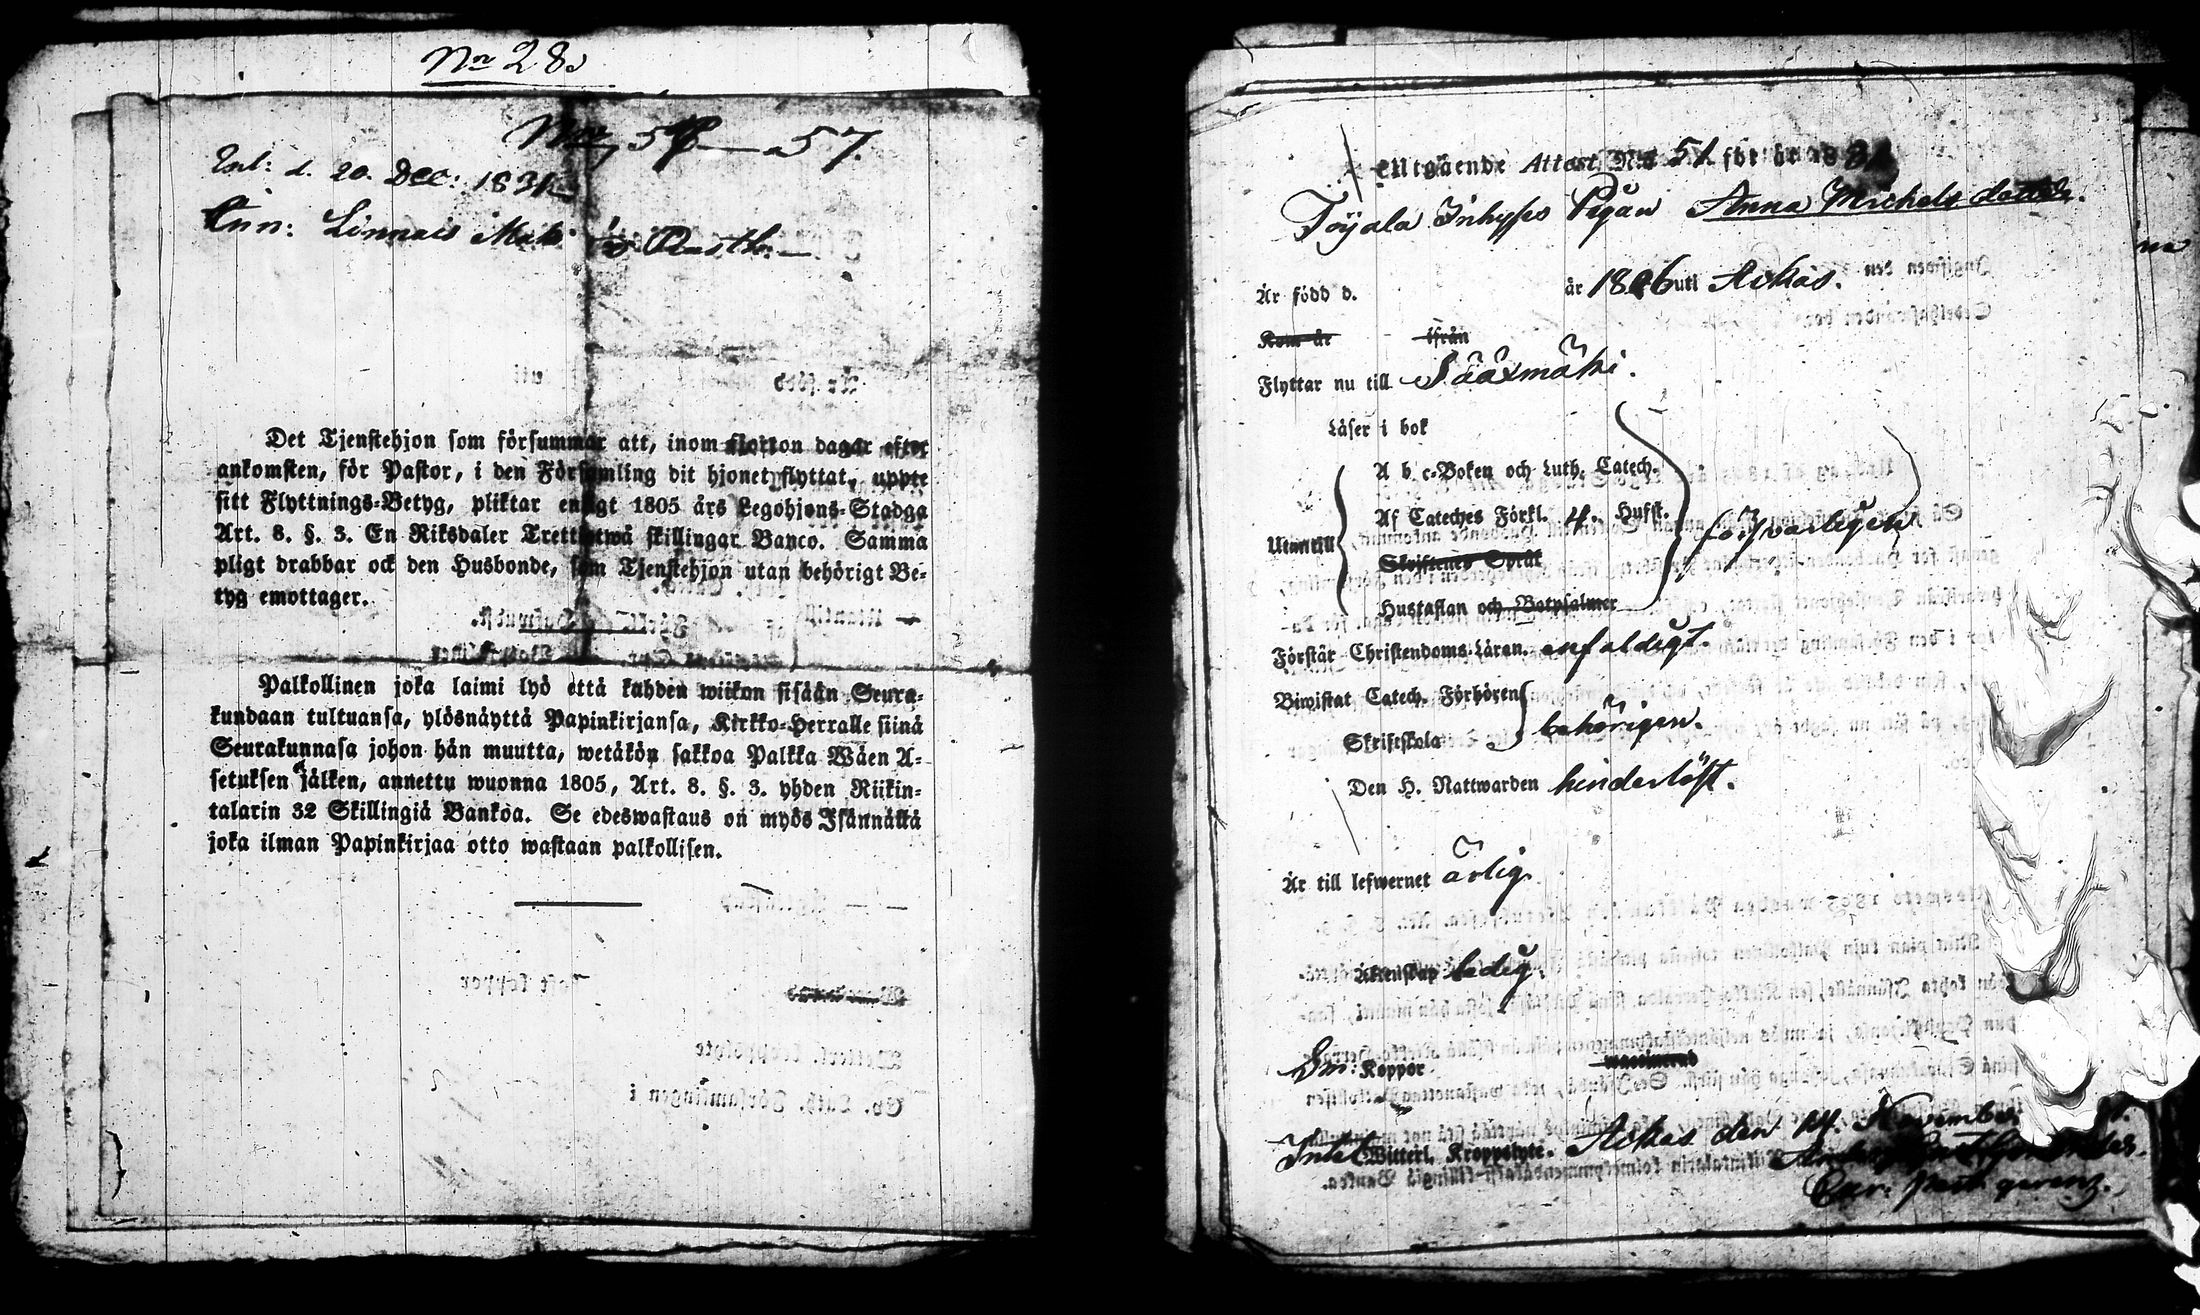 No 28.
57.
d. 20. Dec: 1831
Linnais
Det Tjenstehjon som försummar att, inom fjorton dagar efter
ankomsten, för Pastor, i den Församling dit hjonet flyttat, uppte
sitt Flyttnings-Betyg, pliktar enligt 1805 års Legohjons-Stadga
Art. 8. §. 3. En Riksdaler Trettiotwå skillingar Banco. Samma
pligt drabbar ock den Husbonde, som Tjenstehjon utan behörigt Be-
tyg emottager.
Palkollinen joka laimi lyö että kahden wiikon sisään Seura-
kundaan tultuansa, ylösnäyttä Papinkirjansa, Kirkko-Herralle siinä
Seurakunnasa johon hän muutta, wetäkön sakkoa Palkka Wäen A-
setuksen jälken, annettu wuonna 1805, Art. 8. §. 3. yhden Riikin-
talarin 32 Skillingiä Bankoa. Se edeswastaus on myös Isännällä
joka ilman Papinkirjaa otto wastaan palkollisen.
Utgående Attest N:o 51 för år 1831
Töijala Inhyses Pigan Anna Michels dotter.
Är född d. år 1806 uti Ackas.
Kom år ifrån
Flyttar nu till Sääxmäki.
Läser i bok
A b c-Boken och Luth. Catech.
Af Cateches Förkl. 4. Hufst.
Utantill försvarligen
Skriftenes Språk
Hustaflan och Botpsalmer
Förstår Christendoms-Läran. enfaldigt.
Biwistat Catech. Förhören
Skriftskola behörigen.
Den H. Nattwarden hinderlöst.
Är till lefwernet ärlig
Äktenskap ledig.
Koppor vaccinerad
Intet Witterl. Kroppslyte. Ackas den 14. November
past. gerens.